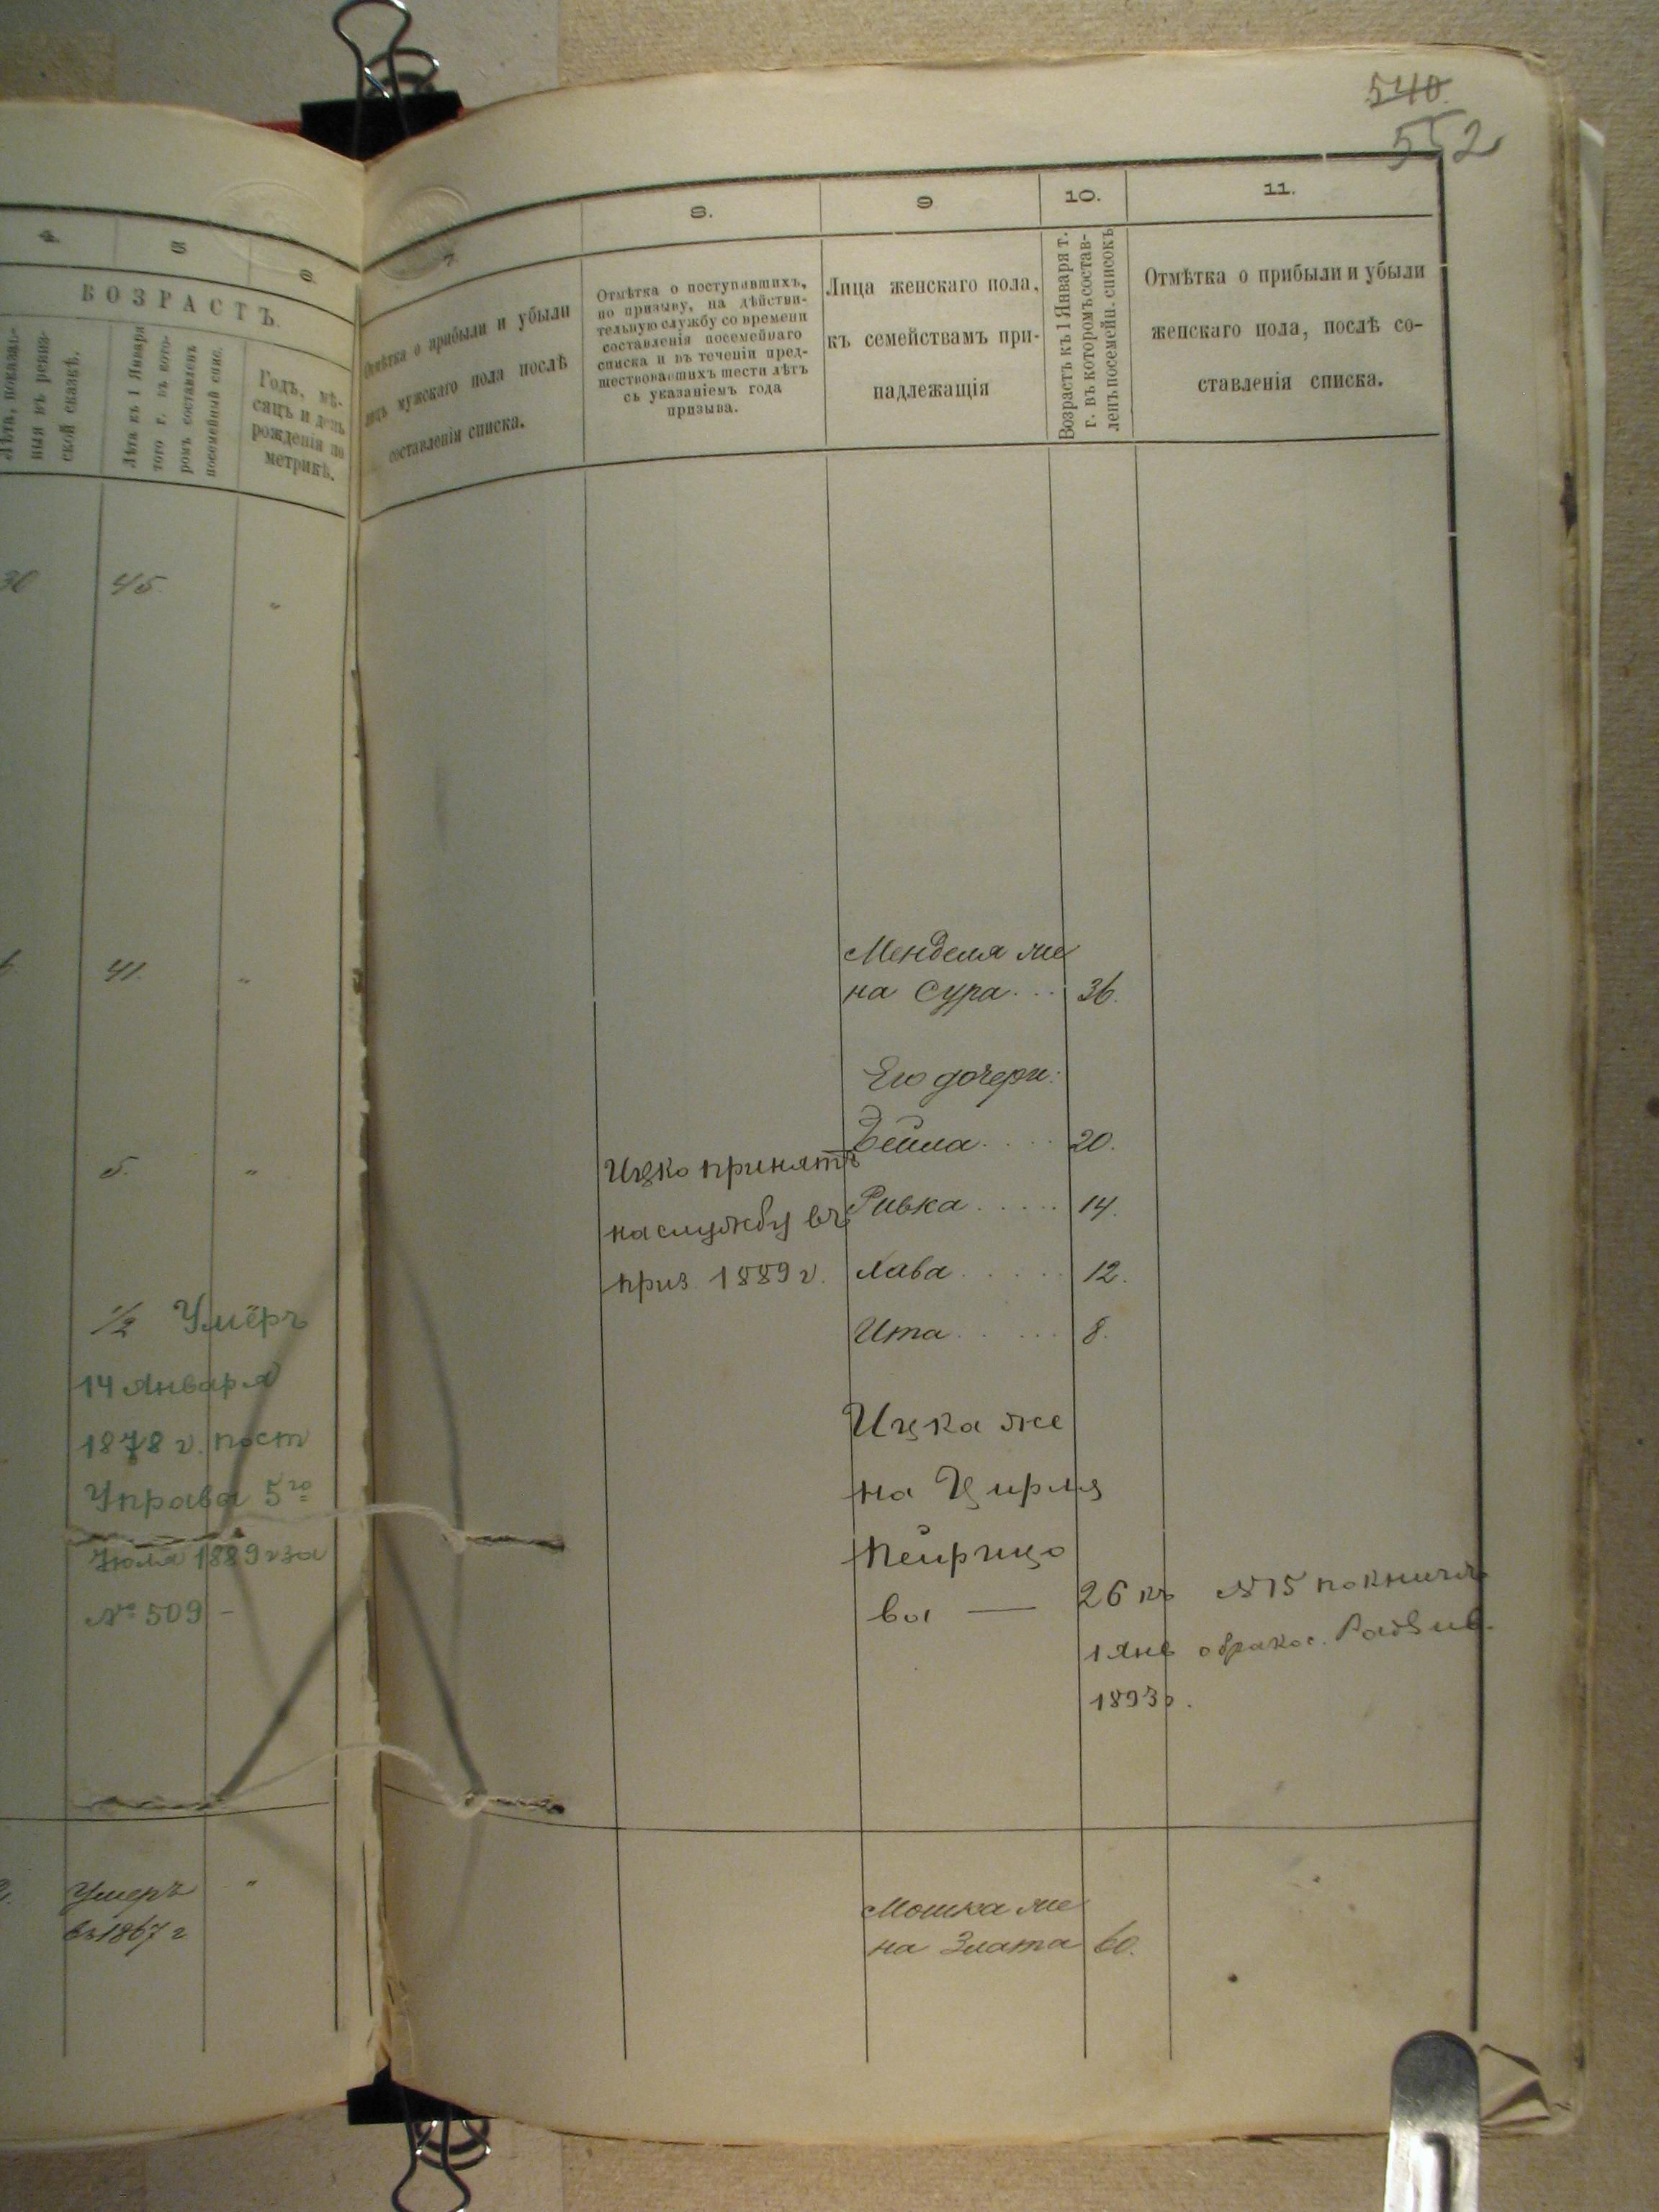 540.
552
4.
5
6.
ВОЗРАСТЪ.
Лѣта, показан-
ныя въ ревиз-
ской сказкѣ.
Лѣта къ 1 Января
того г. въ кото-
ромъ составленъ
посемейный спис.
Годъ, мѣ-
сяцъ и день
рожденія по
метрикѣ.
30
45
"
41.
"
5.
"
1/2 Умёръ
14 Января
1878 г. пост
Управа 5го
Іюля 1889 г за
№ 509 -
Умеръ
въ 1867 г
"
7
8.
9
10.
11.
Отмѣтка о прибыли и убыли
лицъ мужскаго пола послѣ
составленія списка.
Отмѣтка о поступавшихъ,
по призыву, на дѣйстви-
тельную службу со времени
составленія посемейнаго
списка и въ теченіи пред-
шествовавшихъ шести лѣтъ
съ указаніемъ года
призыва.
Лица женскаго пола,
къ семействамъ при-
надлежащія
Возрастъ къ 1 Января т.
г. въ которомъ состав-
ленъ посемейн. списокъ
Отмѣтка о прибыли и убыли
женскаго пола, послѣ со-
ставленія списка.
Менделя же
на Сура... 36.
Его дочери:
Бейла.... 20.
Ривка..... 14.
Хава..... 12.
Ита..... 8.
Ицко принятъ
на службу въ
приз. 1889 г.
Ицка же
на Цирля
Пейрицо
ва —
26 къ
1 Янв
1893 г.
№ 15 по книгѣ
о брако с. Радзив.
Мошка же
на Злата 60.